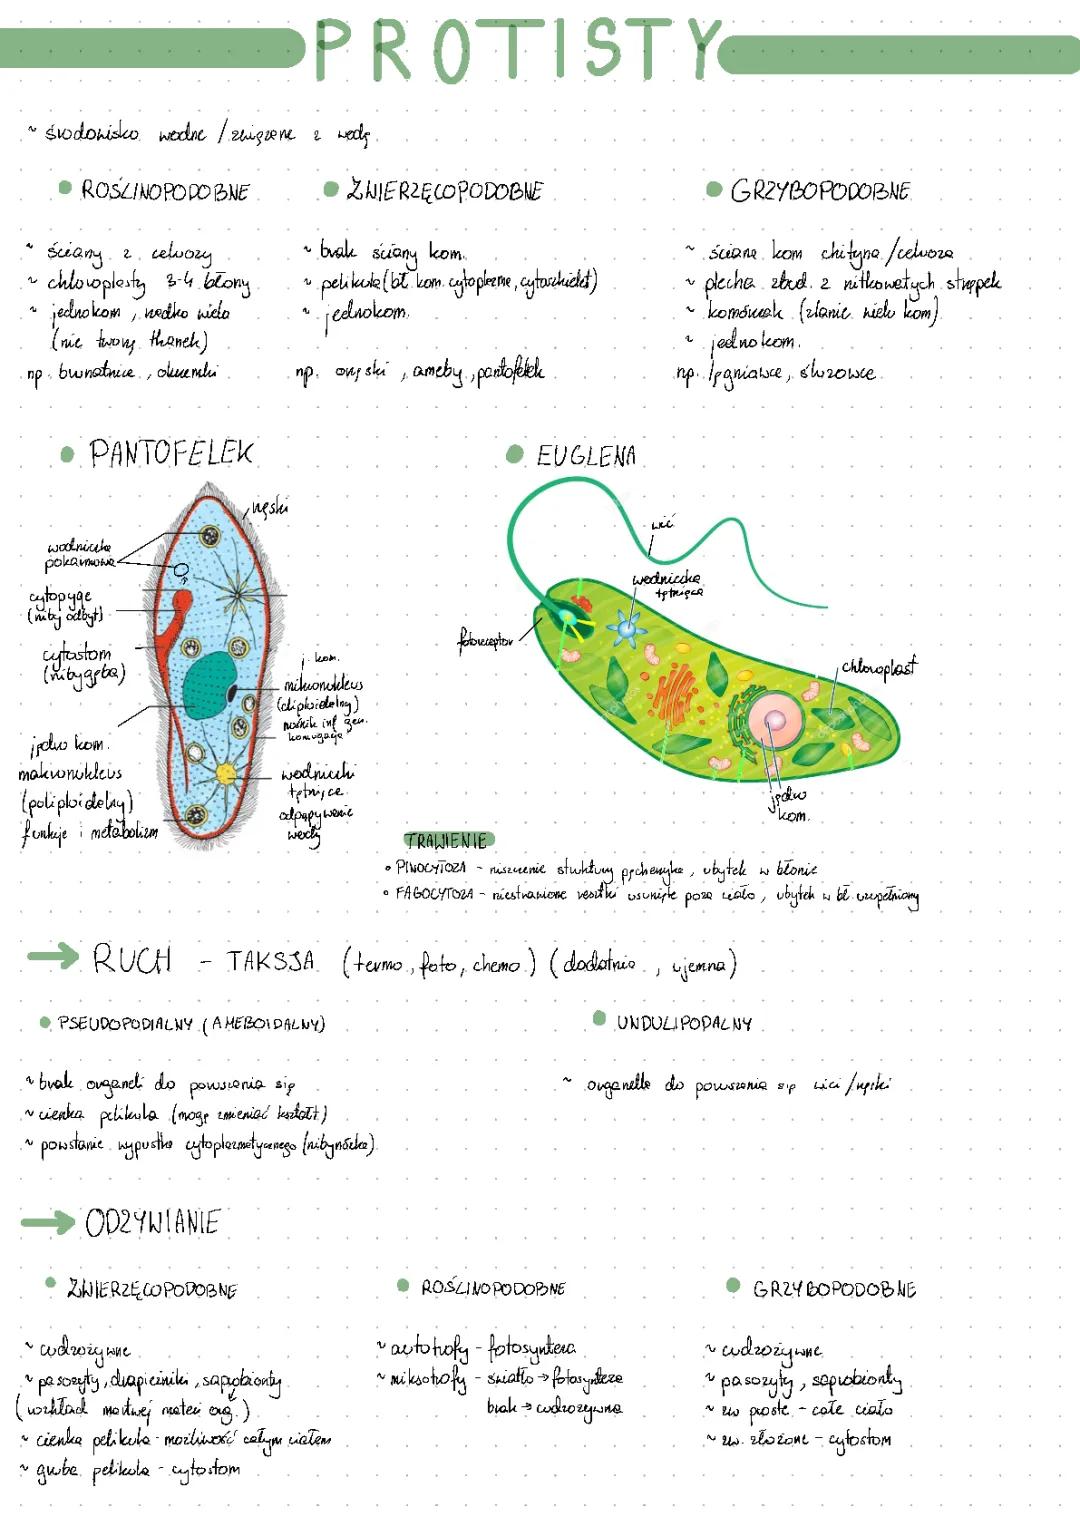 PROTISTY
~ środowisko wodne / związane z wodą
ROŚLINOPODOBNE
~ ściany z celulozy
~ chloroplasty 3-4 błony
~ jednokom, rzadko wielo
(nie tworzą tkanek)
np. brunatnice, okrzemki
ZWIERZĘCOPODOBNE
~ brak ściany kom.
~ pelikula (bł. kom. cytoplazma, cytoszkielet)
~ jednokom.
np. orzęski, ameby, pantofelek
GRZYBOPODOBNE
~ ściana kom chityna / celuloza
~ plecha zbud. z nitkowatych strzępek
~ komórczak (zlanie wielu kom)
~ jednokom.
np. lęgniowce, śluzowce
PANTOFELEK
rzęski
wodniczka
pokarmowa
cytopyge
(niby odbyt)
cytostom
(nibygęba)
jądro kom.
makronukleus
(poliploidalny)
funkcje i metabolizm
j. kom.
mikronukleus
(diploidalny)
nośnik inf gen.
koniugacja
wodniczki
tętniące
odpompywanie
wody
EUGLENA
wić
wodniczka
tętniąca
fotoreceptor
chloroplast
jądro
kom.
TRAWIENIE
• PINOCYTOZA - niszczenie struktury pęcherzyka, ubytek w błonie
• FAGOCYTOZA - niestrawione resztki usunięte poza ciało, ubytek w bł. uzupełniony
→ RUCH - TAKSJA (termo, foto, chemo) (dodatnia, ujemna)
PSEUDOPODIALNY (AMEBOIDALNY)
~ brak organelli do poruszania się
~ cienka pelikula (mogą zmieniać kształt)
~ powstanie wypustka cytoplazmatycznego (nibynóżka)
UNDULIPODALNY
~ organelle do poruszania się wici / rzęski
→ ODŻYWIANIE
ZWIERZĘCOPODOBNE
~ cudzożywne
~ pasożyty, drapieżniki, saprobionty
(rozkład martwej materi org.)
~ cienka pelikula - możliwość całym ciałem
~ gruba pelikula - cytostom
ROŚLINOPODOBNE
~ autotrofy - fotosynteza
~ miksotrofy - światło → fotosynteza
brak → cudzożywne
GRZYBOPODOBNE
~ cudzożywne
~ pasożyty, saprobionty
~ zw proste - całe ciało
~ zw. złożone - cytostom